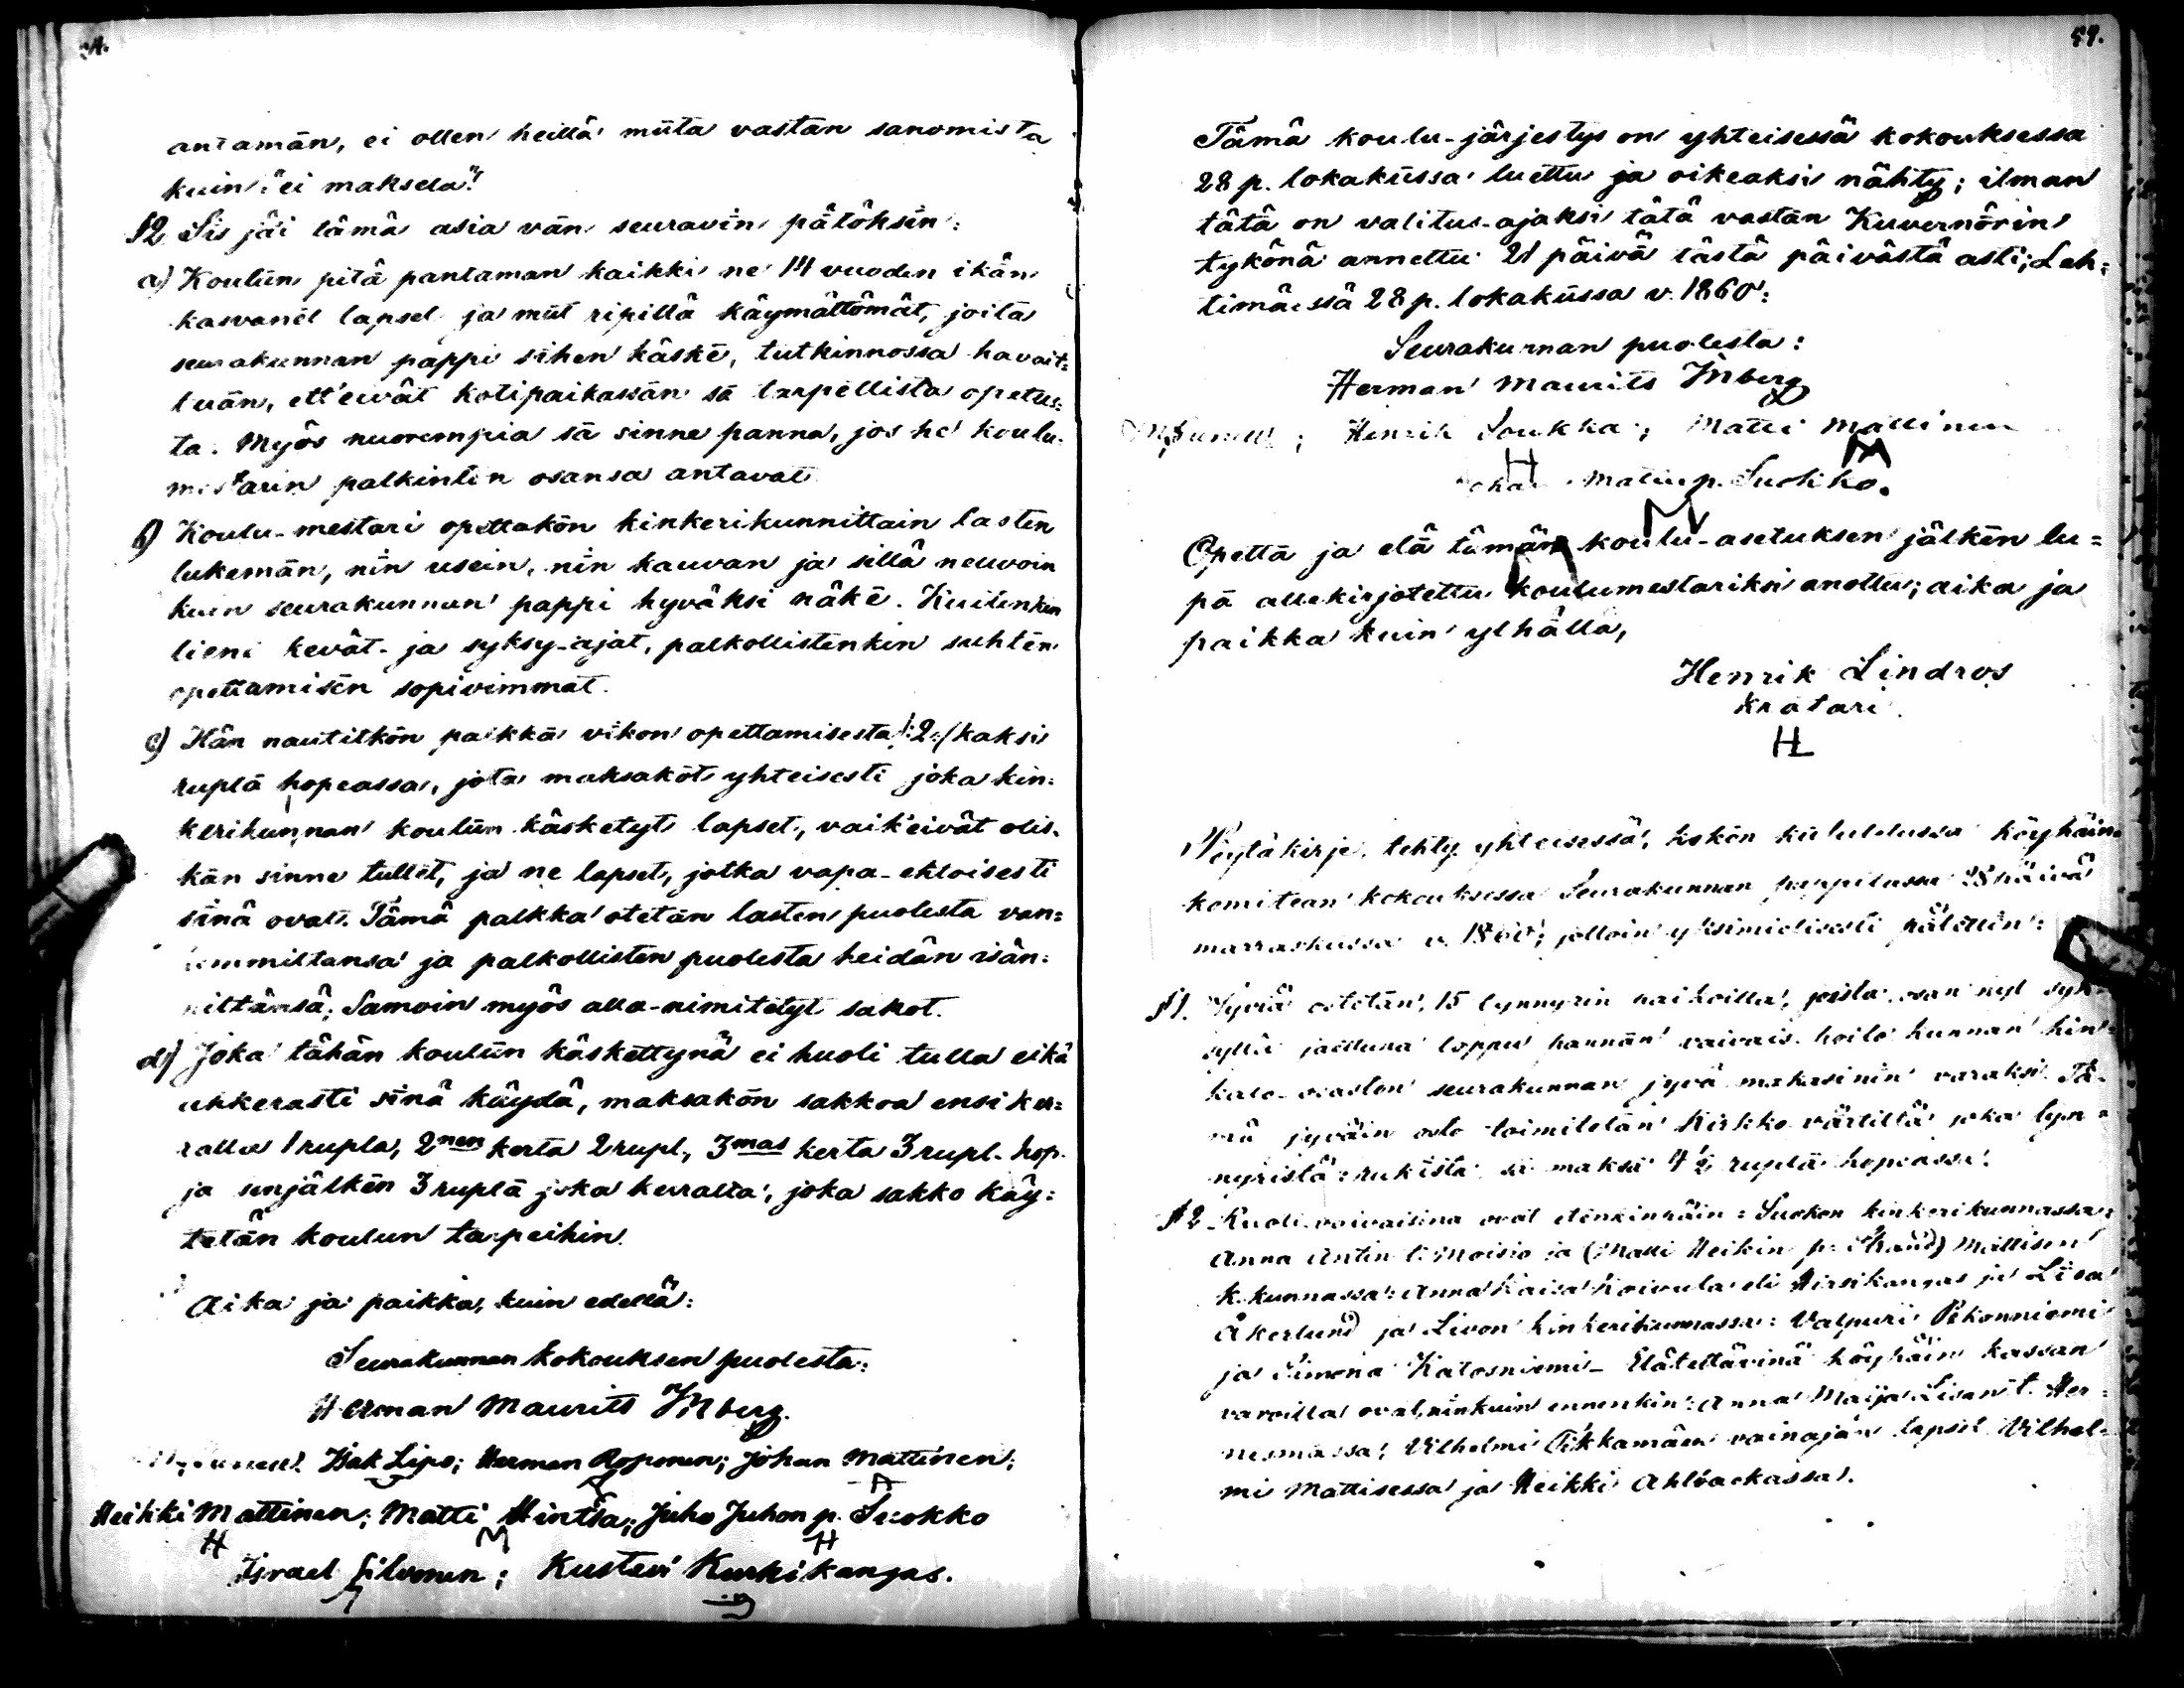 antamān, ei ollen heillä mūta vastān sanomista
kuin: "ei maksela".
§2 Sīs jäi tämä asia vān seuravīn pätöksīn:
a) Koulūn pitä pantaman kaikki ne 14 vuoden ikān
kasvanēt lapset ja mūt ripillä käymättömät, joita
seurakunnan pappi sihen käskē, tutkinnossa havait=
tuān, ett'eivät kotipaikassān sā tarpēllista opetus=
ta. Myös nuorempia sā sinne panna, jos he koulu-
mestarin palkintōn osansa antavat
b) Koulu-mestari opettakōn kinkerikunnittain lasten
lukemān, nīn usein, nīn kauvan ja sillä neuvoin
kuin seurakunnan pappi hyväksi näkē. Kuitenkin
lieni kevät- ja syksy-ajat, palkollistenkin suhtēn
opettamisēn sopivimmat.
c) Hän nautitkōn palkkā vikon opettamisesta /:2:/ kaksi
ruplā hopeassa, jota maksakōt yhteisesti joka kin=
kerikunnan koulūn käsketyt lapset, vaik'eivät olis-
kān sinne tullēt, ja ne lapset, jotka vapa-ehtoisesti
sīnä ovat. Tämä palkka otetān lasten puolesta van=
hemmiltansa ja palkollisten puolesta heidän isän=
niltänsä; Samoin myös alla-nimitetyt sakot.
d) Joka tähän koulūn käskettynä ei huoli tulla eikä
uhkerasti sīnä käydä, maksakōn sakkoa ensi ker=
ralla 1 rupla, 2nen kerta 2 rupl., 3mas kerta 3 rupl. hop.
ja senjälkēn 3 ruplā joka kerralta, joka sakko käy=
tetān koulun tarpeihin.
Aika ja paikka, kuin edellä:
Seurakunnan kokouksen puolesta:
Herman Maurits Inberg.
Isak Lipo; Herman Roponen; Johan Mattinen;
Heikki Mattinen; Matti Hintsa; Juho Juhon p. Suokko
H M H
Israel Silvonen; Kustavi Kurkikangas.
59.
Tämä koulu-järjestys on yhteisessä kokouksessa
28 p. lokakūssa luettu ja oikeaksi nähty; ilman
tätä on valitus-ajaksi tätä vastān Kuvernörin
tykönä annettu 21 päivā tästä päivästä asti; Leh=
timäessä 28 p. lokakūssa v. 1860:
Seurakunnan puolesta:
Herman Maurits Inberg
Henrik Soukka; Matti Mattinen
H M
Matin p. Suokko.
M
Opettā ja elā tämän koulu-asetuksen jälkēn lu=
pā allekirjotettu koulumestariksi anottu; aika ja
paikka kuin ylhällä,
Henrik Lindros
Krātari
HL
Pöytäkirja, tehty yhteisessä, kokōn kūlutetussa köyhäin
komitean kokouksessa Seurakunnan pappilassa 28 päivā
marraskūssa v. 1860; jolloin yksimielisesti pätettīn:
§1. Jyviä ostetān, 15 tynnyrin
loppu pannān vaivais-hoito kunnan
seurakunnan jyvä makasinin varaksi. Tä-
mä jyväin osto toimitetān Kirkko värtiltä joka tyn=
nyristä rukīsta sā maksā 4½ ruplā hopeassa.
§2. Ruoti-vaivaisina ovat etenkinnäin: Suokon kinkerikunnassa:
Anna Antin t. Moisio ja (Matti Heikin p. Strand) Mattisen
k. kunnassa: Anna Kaisa Koivula eli Hirsikangas ja Līsa
Åkerlund ja Livon kinkerikunnassa: Valpuri Pekonniemi
ja Simona Katosniemi - Elätettävinä köyhäin kassan
varoilla ovat, nīnkuin ennenkin: Anna Maija Līsan t. Her=
nesmāssa, Vilhelmi Pikkamäen vainajan lapset Vilhel-
mi Mattisessa ja Heikki Ahlbackassa.